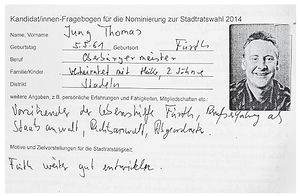 Kandidat/innen-Fragebogen für die Nominierung zur Stadtratswahl 2014
Name, Vorname Jung Thomas
Geburtstag 5.5.61 Geburtsort Fürth
Beruf Oberbürgermeister
Familie/Kinder verheiratet mit Heike 2 Söhne
Distrikt Stadeln
weitere Angaben, z.B. persönliche Erfahrungen und Fähigkeiten, Mitgliedschaften etc.
Vorsitzender der Lebenshilfe Fürth, Berufserfahrung als
Staatsanwalt, Rechtsanwalt, Abgeordneter
Motive und Zielvorstellungen für die Stadtratstätigkeit
Fürth weiter gut entwickeln